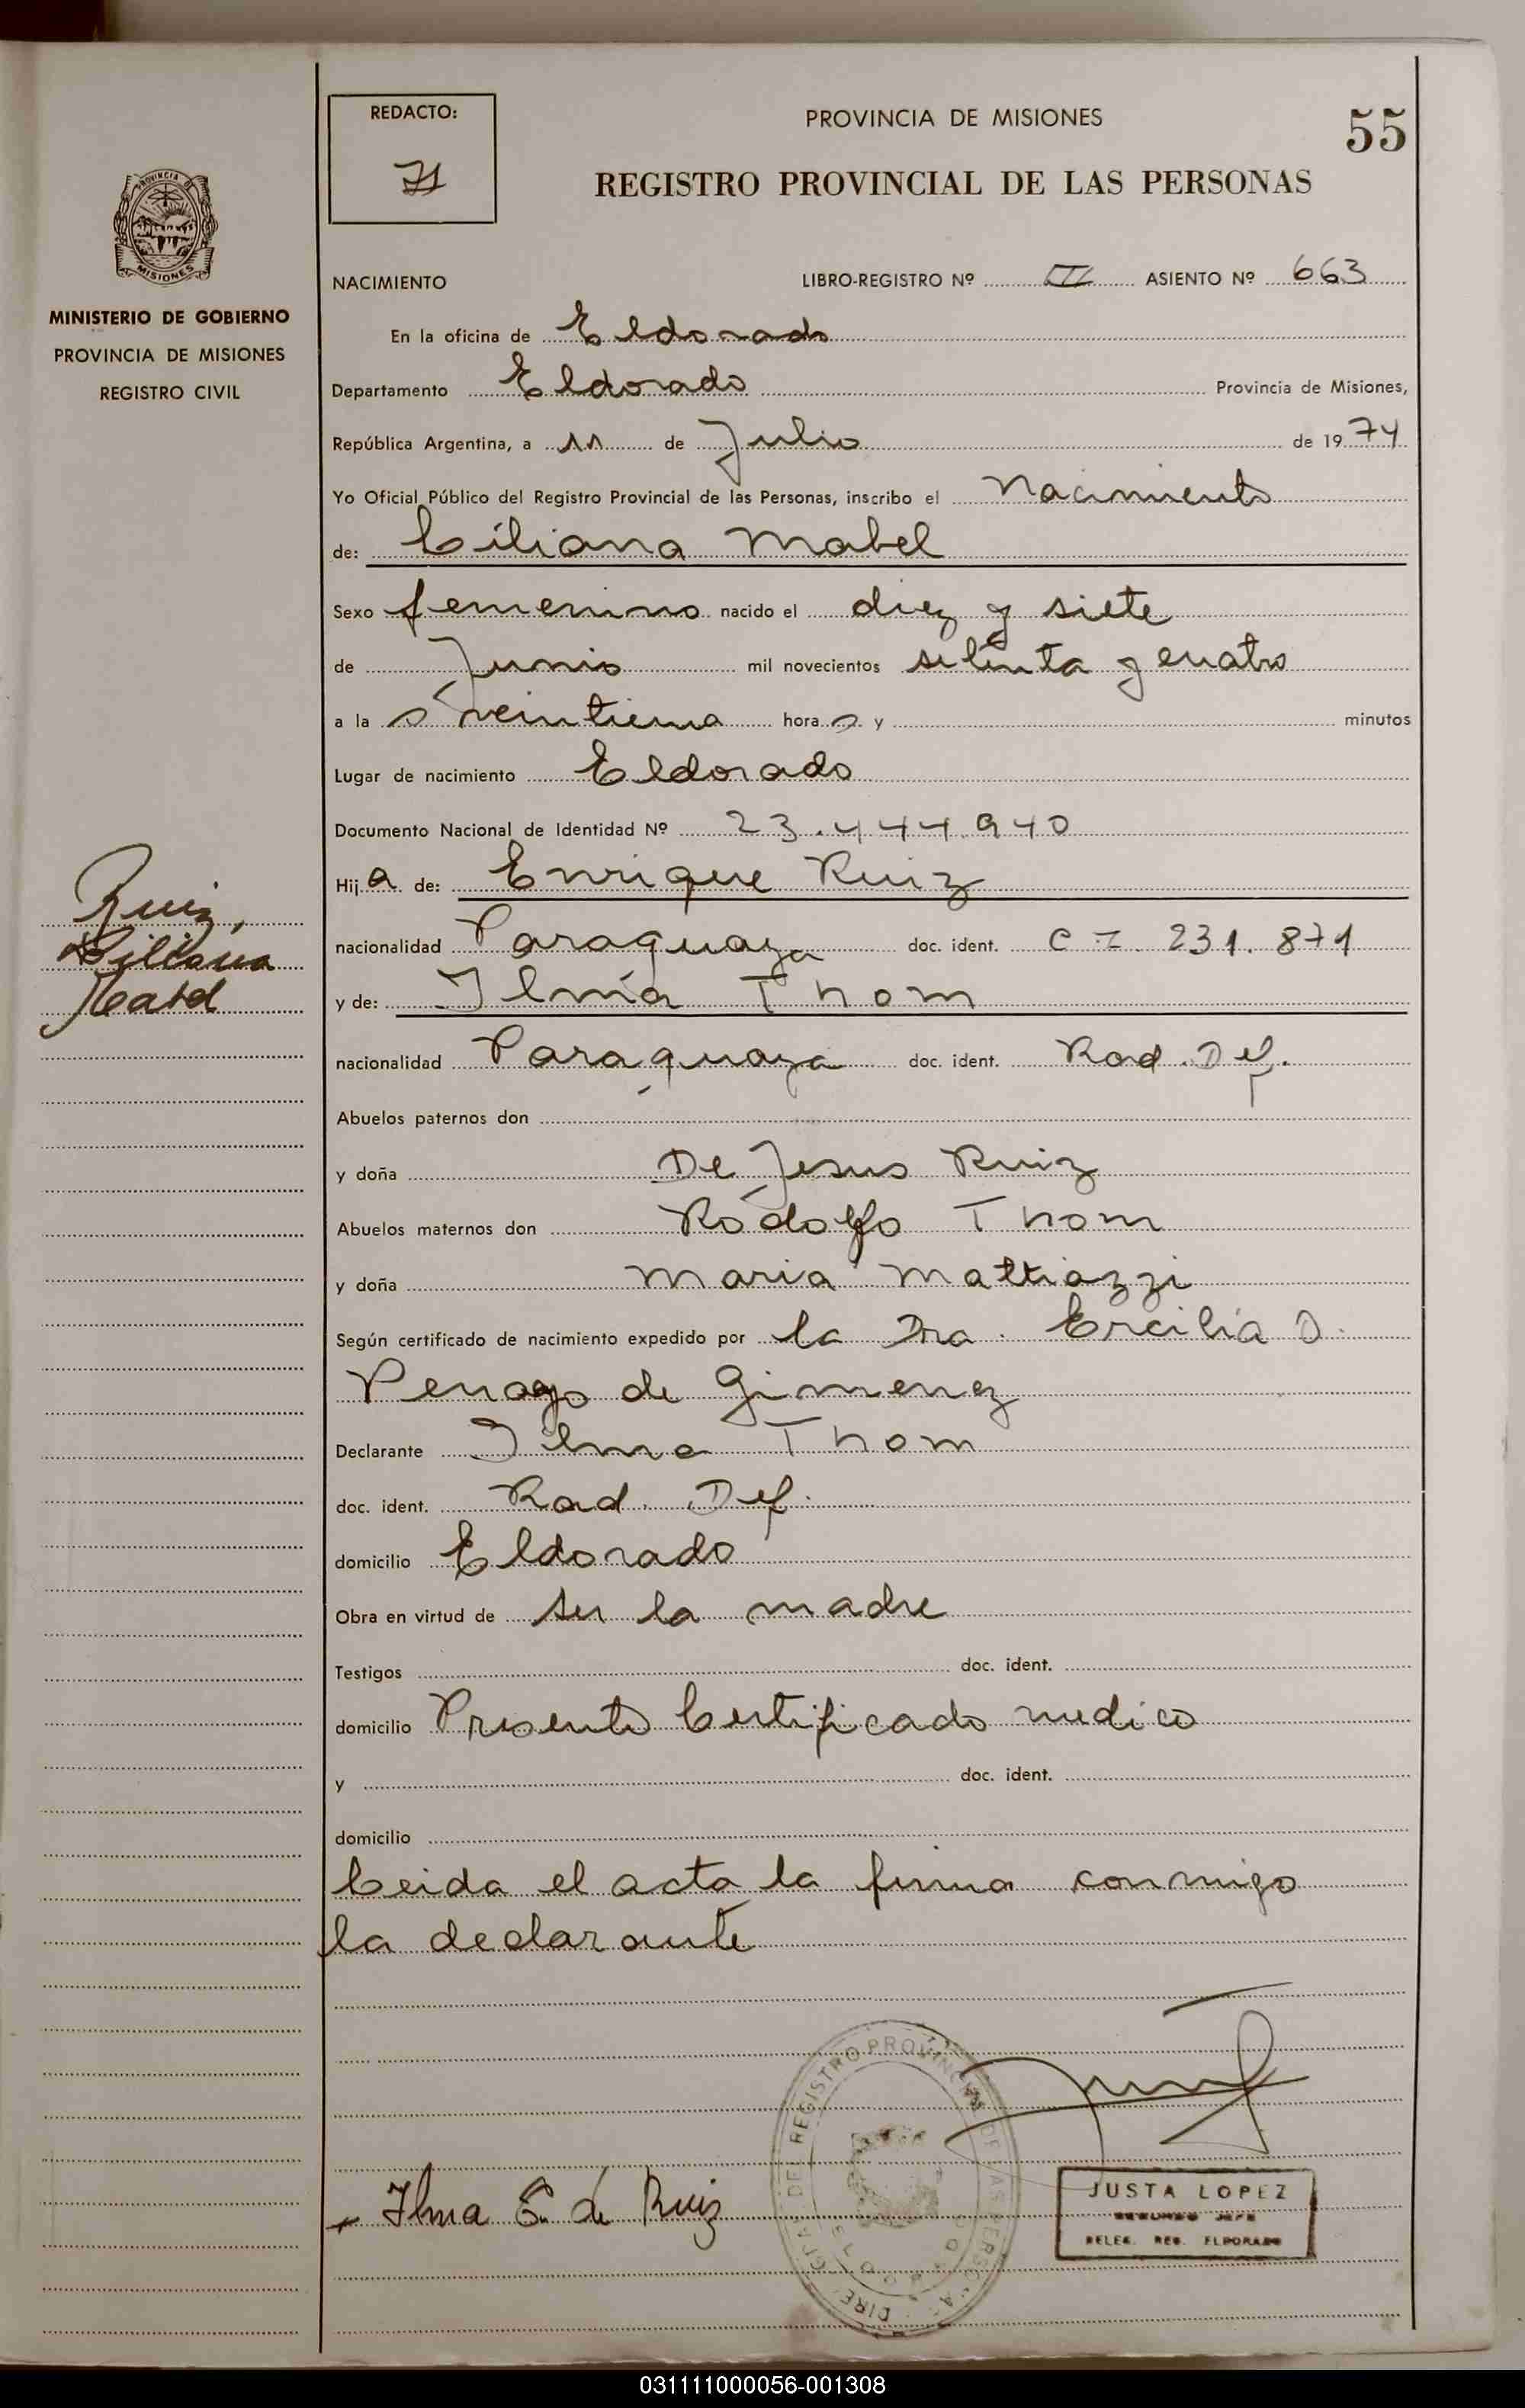 REDACTO:
PROVINCIA DE MISIONES
55
REGISTRO PROVINCIAL DE LAS PERSONAS
PROVINCIA DE
MISIONES
MINISTERIO DE GOBIERNO
PROVINCIA DE MISIONES
REGISTRO CIVIL
NACIMIENTO LIBRO-REGISTRO Nº III ASIENTO Nº 663
En la oficina de Eldorado
Departamento Eldorado Provincia de Misiones,
República Argentina, a 11 de Julio de 1974
Yo Oficial Público del Registro Provincial de las Personas, inscribo el Nacimiento
de: Liliana Mabel
Sexo femenino nacido el diez y siete
de Junio mil novecientos setenta y cuatro
a la s veintiuna hora s y minutos
Lugar de nacimiento Eldorado
Documento Nacional de Identidad Nº 23.444.940
Hij a de: Enrique Ruiz
nacionalidad Paraguaya doc. ident. C I. 231.871
y de: Ilma Thom
nacionalidad Paraguaya doc. ident. Rad. Def.
Abuelos paternos don
y doña De Jesus Ruiz
Abuelos maternos don Rodolfo Thom
y doña Maria Mattiazzi
Según certificado de nacimiento expedido por la Dra. Ercilia O.
Penago de Gimenez
Declarante Ilma Thom
doc. ident. Rad. Def.
domicilio Eldorado
Obra en virtud de ser la madre
Testigos doc. ident.
domicilio Presento Certificado medico
y doc. ident.
domicilio
Leida el acta la firma conmigo
la declarante
Ruiz,
Liliana
Mabel
Ilma E. de Ruiz
JUSTA LOPEZ
SEGUNDO JEFE
DELEG. REG. ELDORADO
031111000056-001308